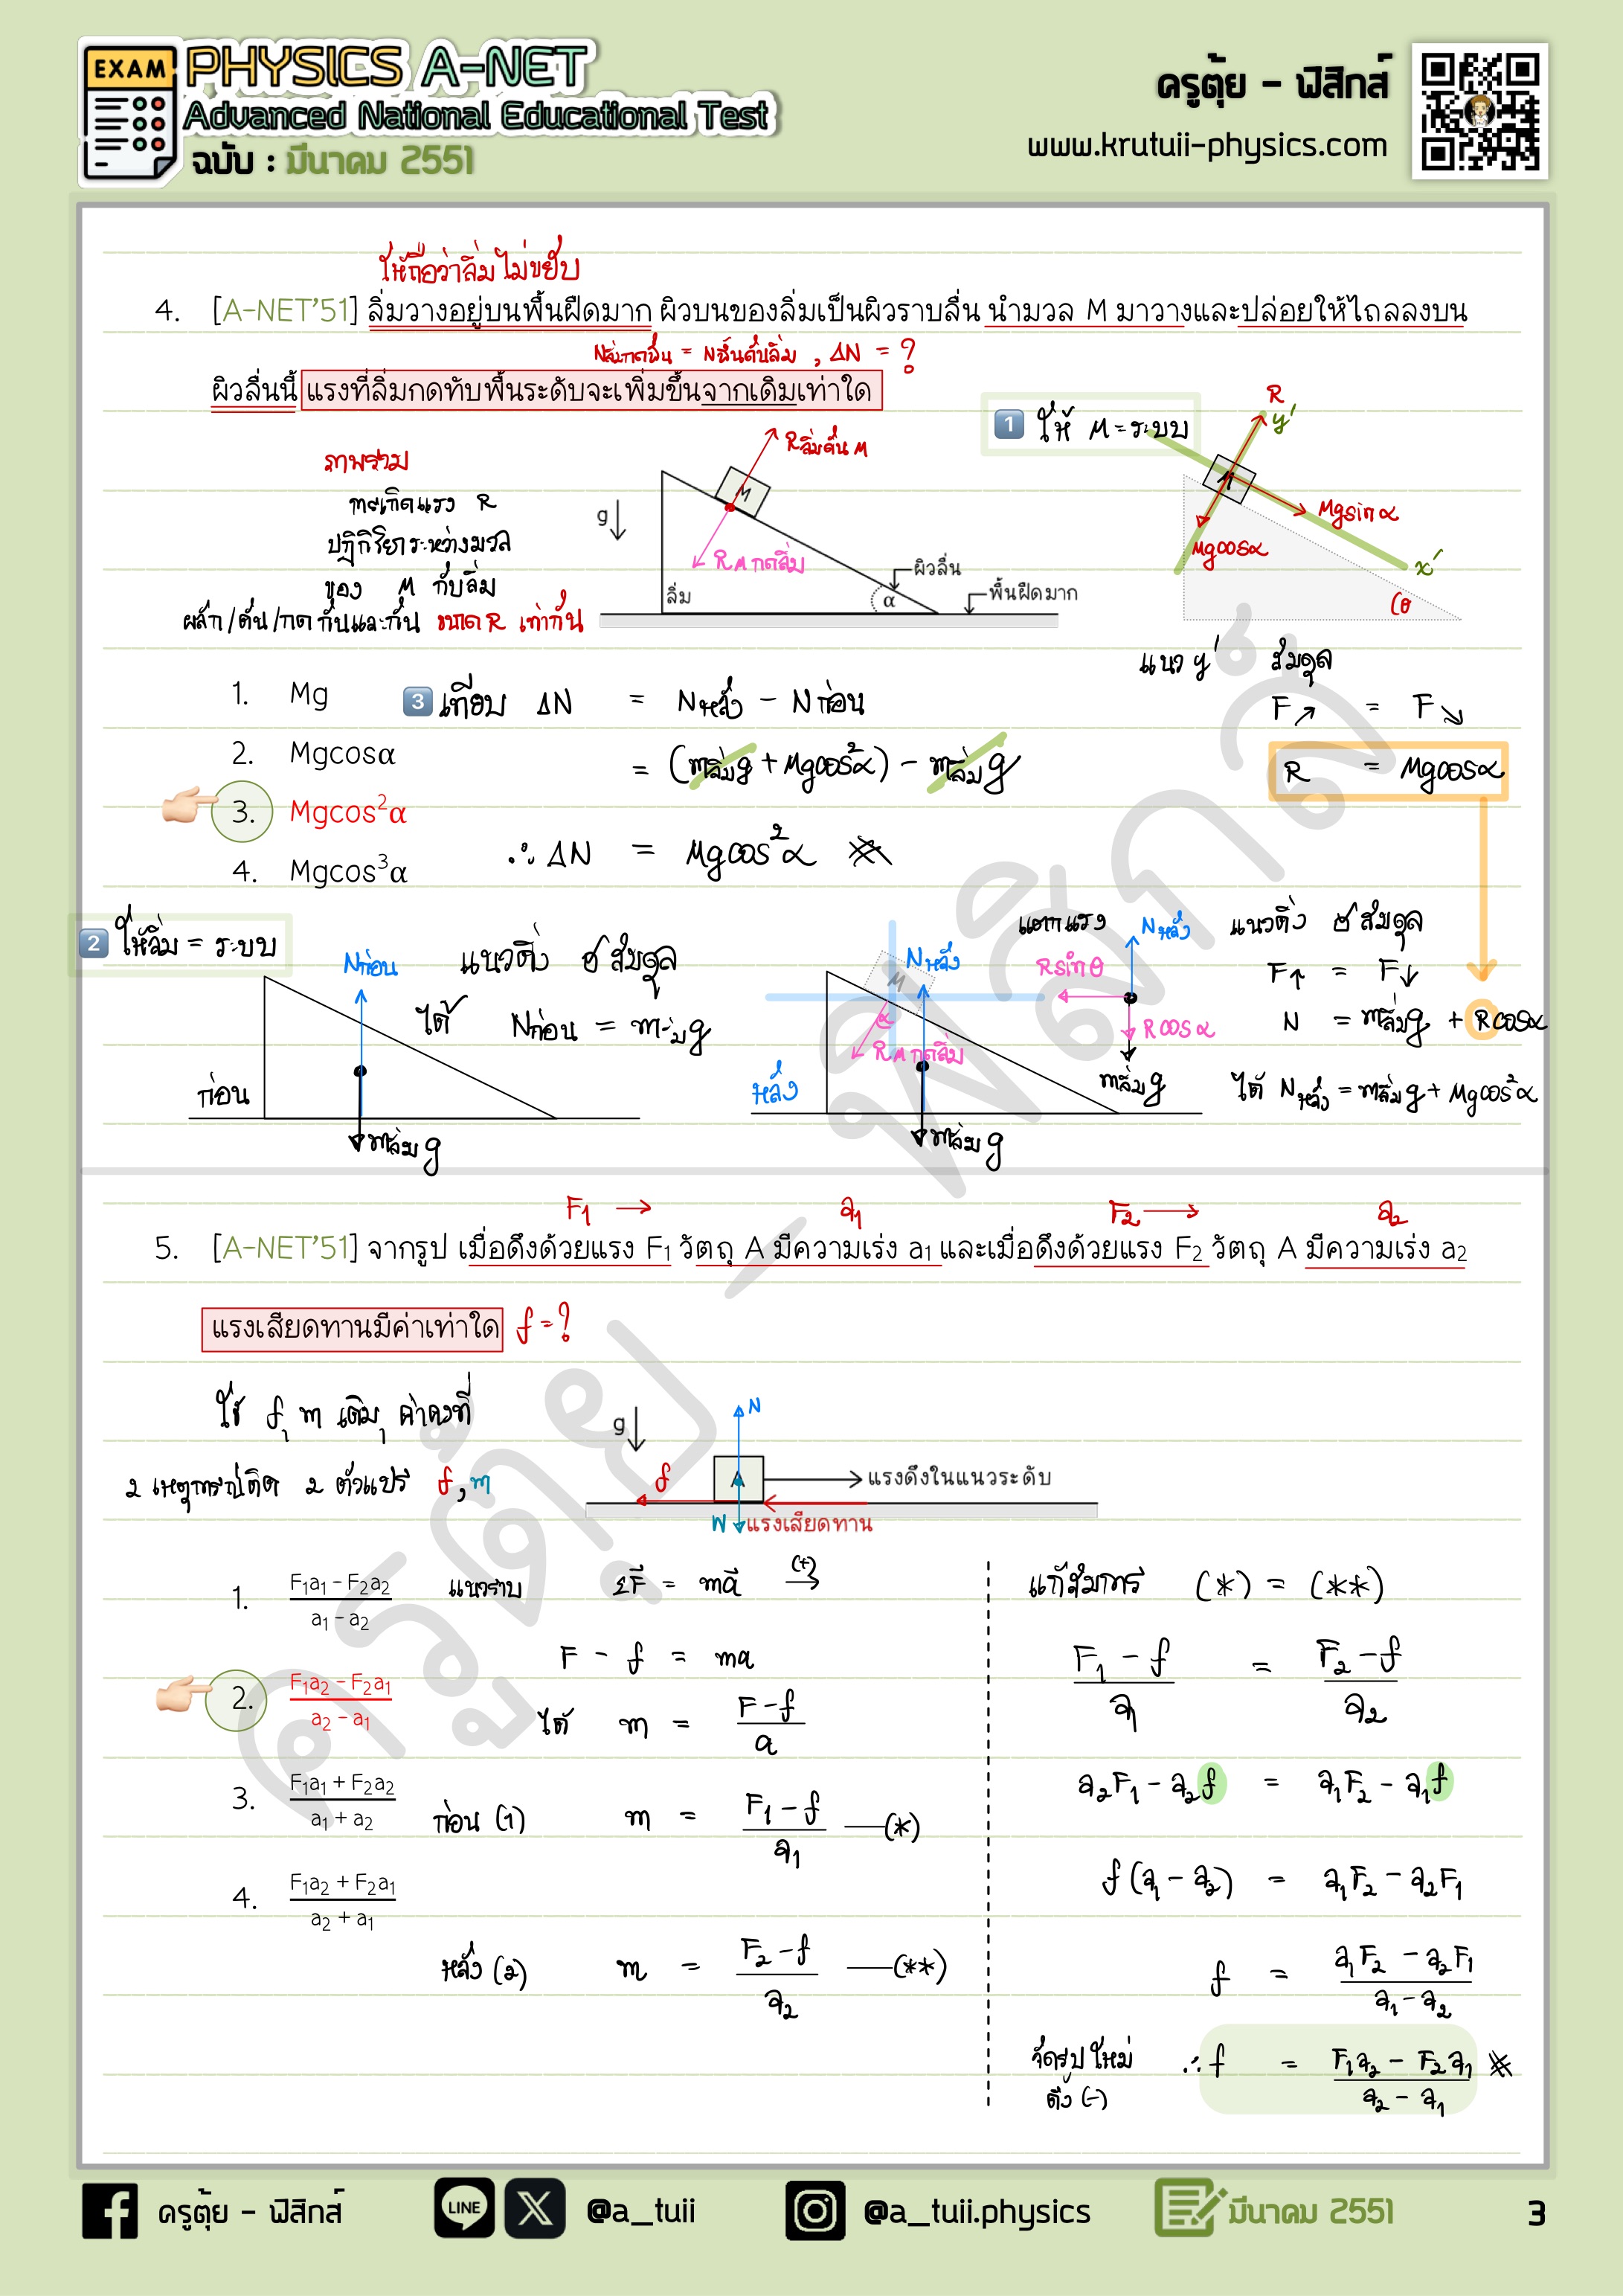 EXAM
PHYSICS A-NET
Advanced National Educational Test
ฉบับ : มีนาคม 2551
ครูตุ้ย - ฟิสิกส์
www.krutuii-physics.com
ให้ถือว่าลิ่มไม่ขยับ
4. [A-NET'51] ลิ่มวางอยู่บนพื้นฝืดมาก ผิวบนของลิ่มเป็นผิวราบลื่น นำมวล M มาวางและปล่อยให้ไถลลงบน
Nลิ่มกดพื้น = Nพื้นดันลิ่ม , ΔN = ?
ผิวลื่นนี้ แรงที่ลิ่มกดทับพื้นระดับจะเพิ่มขึ้นจากเดิมเท่าใด
1 ให้ M = ระบบ
R
y'
M
Mgsinα
Mgcosα
x'
θ
ภาพรวม
จะเกิดแรง R
ปฏิกิริยาระหว่างมวล
ของ M กับลิ่ม
ผลัก/ดัน/กด กันและกัน ขนาด R เท่ากัน
g
M
Rลิ่มดัน M
R M กดลิ่ม
ลิ่ม
α
ผิวลื่น
พื้นฝืดมาก
แนว y' สมดุล
F↗ = F↘
R = Mgcosα
1. Mg
2. Mgcosα
3. Mgcos²α
4. Mgcos³α
3 เทียบ ΔN = Nหลัง - Nก่อน
= (mลิ่มg + Mgcos²α) - mลิ่มg
∴ ΔN = Mgcos²α
2 ให้ลิ่ม = ระบบ
Nก่อน
แนวดิ่ง สมดุล
ได้ Nก่อน = mลิ่มg
ก่อน
mลิ่มg
หลัง
M
Nหลัง
α
R M กดลิ่ม
mลิ่มg
แตกแรง
Nหลัง
Rsinθ
Rcosα
mลิ่มg
แนวดิ่ง สมดุล
F↑ = F↓
N = mลิ่มg + Rcosα
ได้ Nหลัง = mลิ่มg + Mgcos²α
ครูตุ้ย - ฟิสิกส์
F₁ → a₁ F₂ → a₂
5. [A-NET'51] จากรูป เมื่อดึงด้วยแรง F₁ วัตถุ A มีความเร่ง a₁ และเมื่อดึงด้วยแรง F₂ วัตถุ A มีความเร่ง a₂
แรงเสียดทานมีค่าเท่าใด f = ?
ใช้ f, m เดิม, ค่าคงที่
2 เหตุการณ์ติด 2 ตัวแปร f, m
g
N
A
f
W
แรงดึงในแนวระดับ
แรงเสียดทาน
1. (F₁a₁ - F₂a₂)/(a₁ - a₂)
2. (F₁a₂ - F₂a₁)/(a₂ - a₁)
3. (F₁a₁ + F₂a₂)/(a₁ + a₂)
4. (F₁a₂ + F₂a₁)/(a₂ + a₁)
แนวราบ ΣF = ma (+)→
F - f = ma
ได้ m = (F - f)/a
ก่อน (1) m = (F₁ - f)/a₁ —(*)
หลัง (2) m = (F₂ - f)/a₂ —(**)
แก้สมการ (*) = (**)
(F₁ - f)/a₁ = (F₂ - f)/a₂
a₂F₁ - a₂f = a₁F₂ - a₁f
f(a₁ - a₂) = a₁F₂ - a₂F₁
f = (a₁F₂ - a₂F₁)/(a₁ - a₂)
จัดรูปใหม่
ดึง (-)
∴ f = (F₁a₂ - F₂a₁)/(a₂ - a₁)
ครูตุ้ย - ฟิสิกส์
LINE
@a_tuii
@a_tuii.physics
มีนาคม 2551
3